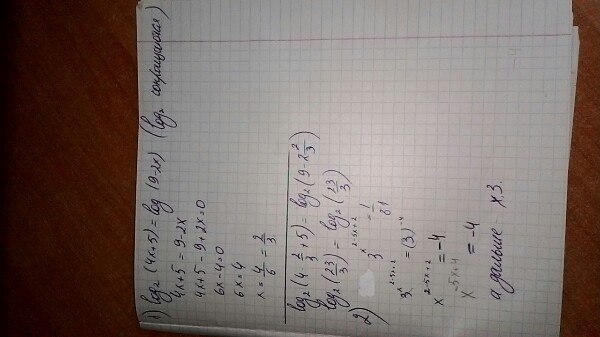 1) log₂ (4x+5) = log (9-2x) (log₂ сокращаются)
4x+5 = 9-2x
4x+5-9+2x=0
6x-4=0
6x=4
x = 4/6 = 2/3
log₂(4·2/3+5) = log₂(9-2 2/3)
log₂(23/3) = log₂(23/3)
2) 3^x^2-5x+2 = 1/81
3^x^2-5x+2 = (3)^-4
x^2-5x+2 = -4
x^-5x+4 = -4
а дальше хз.